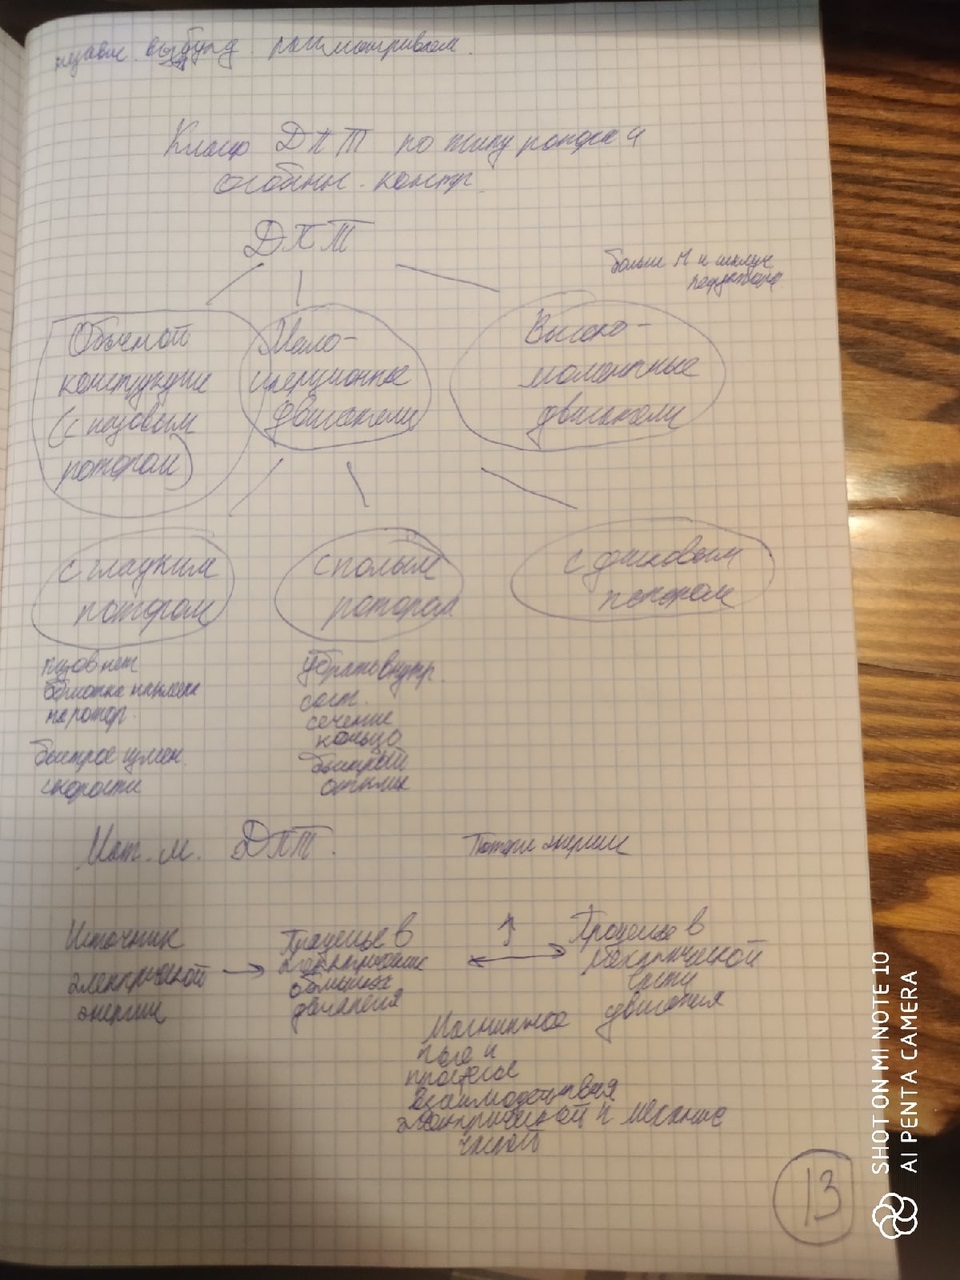 рассматриваем.
Класф ДПТ по типу ротора и
особенн. констр.
ДПТ
больше М и исключ
редуктора
Обычной
конструкции
(с пазовым
ротором)
Мало-
инерционные
двигатели
Высоко-
моментные
двигатели
с гладким
ротором
с полым
ротором
с дисковым
ротором
пазов нет
обмотка
на ротор.
быстрое измен.
скорости
Убрать внутр.
сост.
сечение
кольцо
быстрый
отклик
Мат. м. ДПТ.
Потери энергии
Источник
электрической
энергии
Процессы в
электрических
обмотках
двигателя
Процессы в
механической
части
двигателя
Магнитное
поле и
процессы
взаимодействия
электрической и механич
частей
13
SHOT ON MI NOTE 10
AI PENTA CAMERA